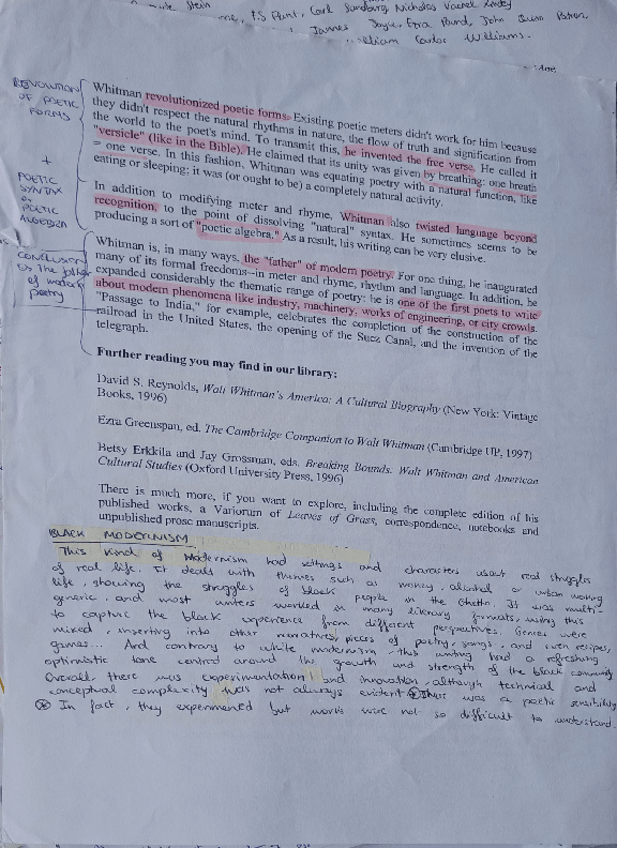 Stein
F.S Flint, Carl Sandburg, Nicholas Vachel Lindsay
James Joyce, Ezra Pound, John Quinn
William Carlos Williams.
REVOLUTION
OF POETIC
FORMS
+
POETIC
SYNTAX
or
POETIC
ALGEBRA
CONCLUSION
as the father
of modern
poetry
Whitman revolutionized poetic forms. Existing poetic meters didn't work for him because
they didn't respect the natural rhythms in nature, the flow of truth and signification from
the world to the poet's mind. To transmit this, he invented the free verse. He called it
"versicle" (like in the Bible). He claimed that its unity was given by breathing: one breath
= one verse. In this fashion, Whitman was equating poetry with a natural function, like
eating or sleeping: it was (or ought to be) a completely natural activity.
In addition to modifying meter and rhyme, Whitman also twisted language beyond
recognition, to the point of dissolving "natural" syntax. He sometimes seems to be
producing a sort of "poetic algebra." As a result, his writing can be very elusive.
Whitman is, in many ways, the "father" of modern poetry. For one thing, he inaugurated
many of its formal freedoms--in meter and rhyme, rhythm and language. In addition, he
expanded considerably the thematic range of poetry: he is one of the first poets to write
about modern phenomena like industry, machinery, works of engineering, or city crowds.
"Passage to India," for example, celebrates the completion of the construction of the
railroad in the United States, the opening of the Suez Canal, and the invention of the
telegraph.
Further reading you may find in our library:
David S. Reynolds, Walt Whitman's America: A Cultural Biography (New York: Vintage
Books, 1996)
Ezra Greenspan, ed. The Cambridge Companion to Walt Whitman (Cambridge UP, 1997)
Betsy Erkkila and Jay Grossman, eds. Breaking Bounds. Walt Whitman and American
Cultural Studies (Oxford University Press, 1996)
There is much more, if you want to explore, including the complete edition of his
published works, a Variorum of Leaves of Grass, correspondence, notebooks and
unpublished prose manuscripts.
BLACK MODERNISM
This kind of Modernism had settings and characters about real struggles
of real life. It deals with themes such as money, alcohol or urban working
life, showing the struggles of black people in the Ghetto. It was multi-
generic, and most writers worked in many literary formats, using this
to capture the black experience from different perspectives. Genres were
mixed, inserting into other narratives, pieces of poetry, songs, and even recipes,
games... And contrary to white modernism, this writing had a refreshing
optimistic tone centred around the growth and strength of the black community
Overall, there was experimentation and innovation, although technical and
conceptual complexity was not always evident. There was a poetic sensibility
In fact, they experimented but works were not so difficult to understand.